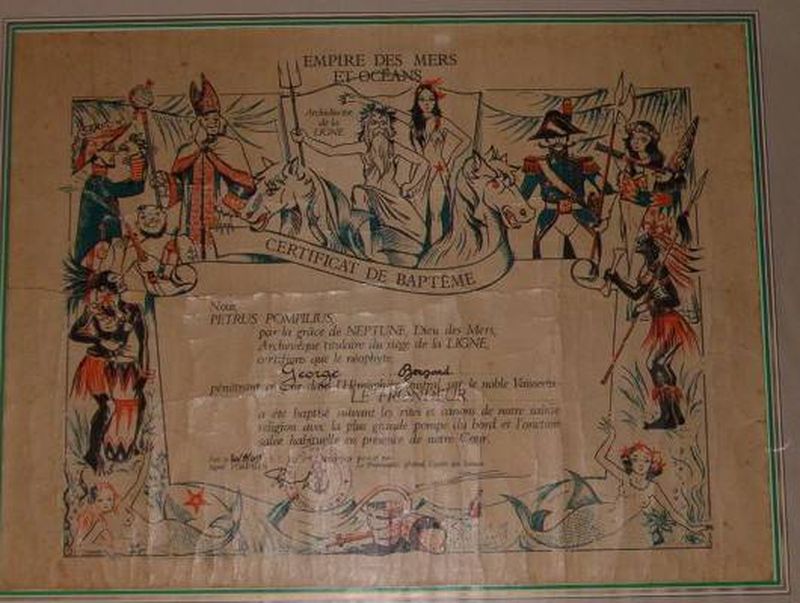 EMPIRE DES MERS
ET OCÉANS
Archidiocèse
de la
LIGNE
CERTIFICAT DE BAPTÊME
Nous,
PETRUS POMPILIUS,
par la grâce de NEPTUNE, Dieu des Mers,
Archevêque titulaire du siège de la LIGNE,
certifions que le néophyte,
George
pénétrant ce jour dans l'Hémisphère Austral sur le noble Vaisseau
LE FRONDEUR
a été baptisé suivant les rites et canons de notre sainte
religion avec la plus grande pompe du bord et l'onction
salée habituelle en présence de notre Cour.
signé POMPILIUS